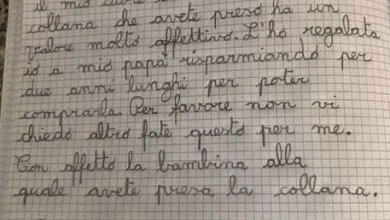 il mio
collana che avete preso ha un
valore molto affettivo. L'ho regalata
io a mio papà risparmiando per
due anni lunghi per poter
comprarla. Per favore non vi
chiedo altro fate questo per me.
Con affetto la bambina alla
quale avete presa la collana.